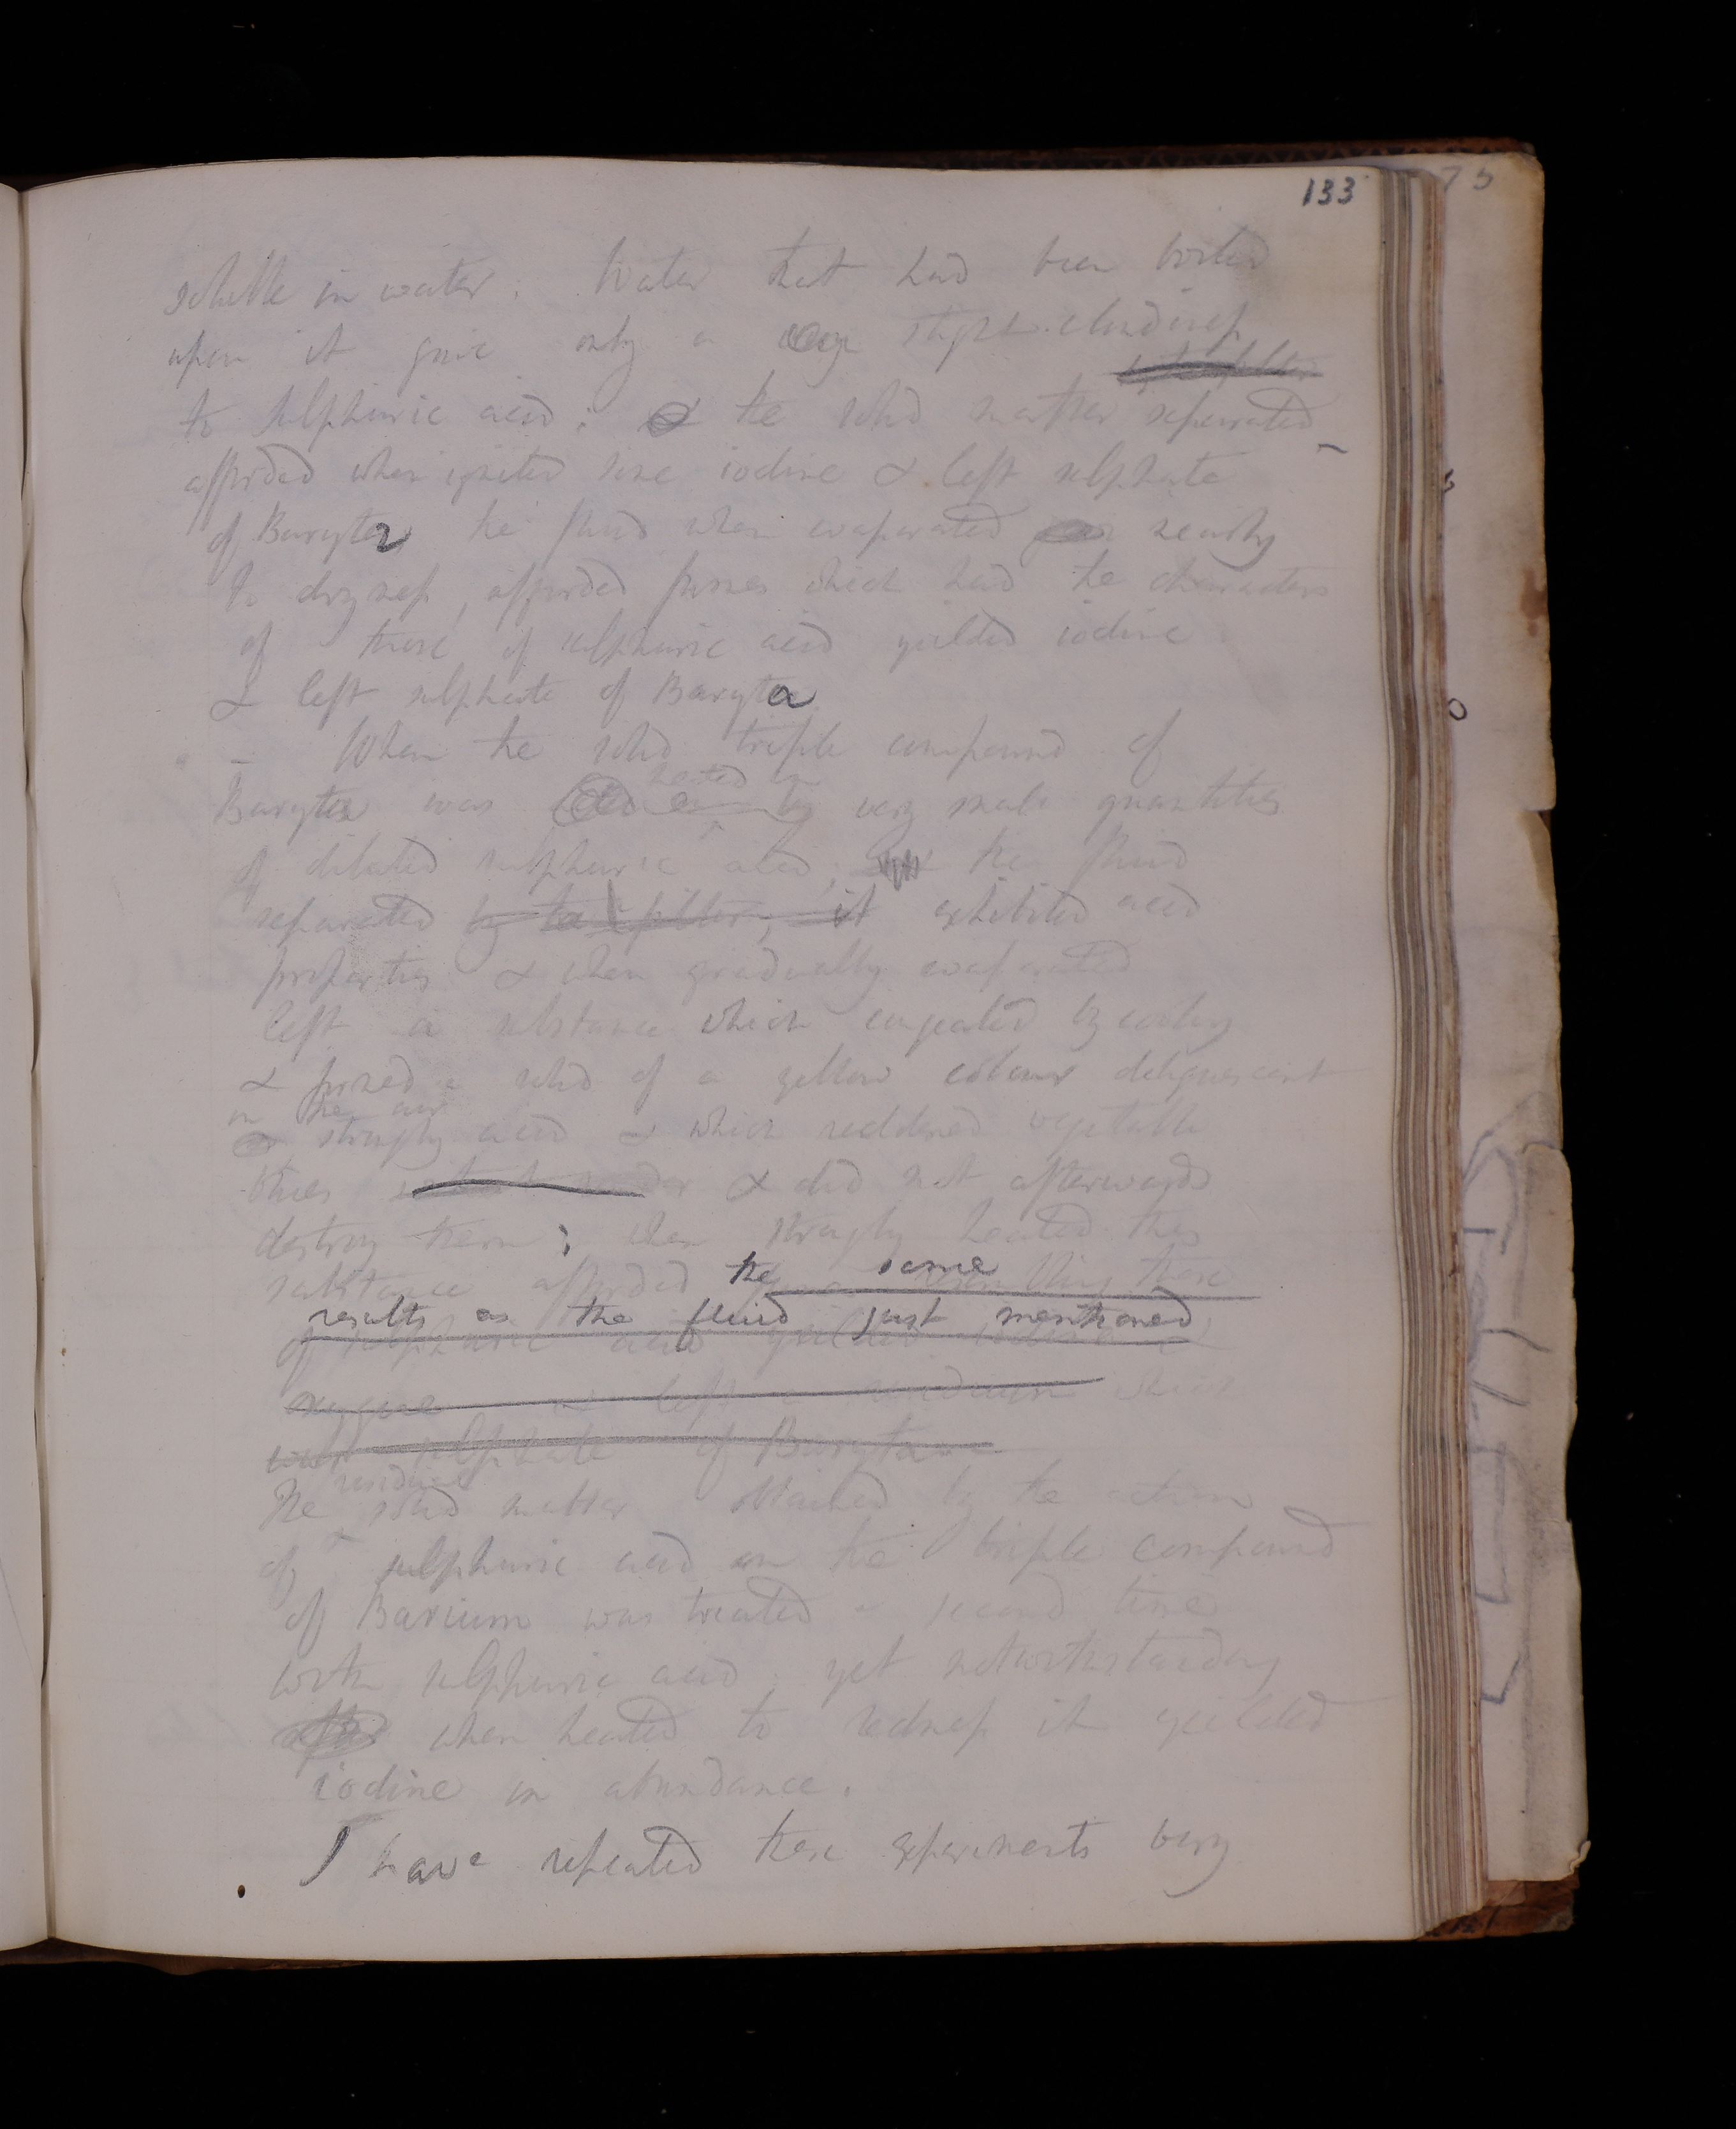 133
soluble in water. Water that had been boiled
upon it gave only a very slight cloudiness
by the filter
to sulphuric acid; & the solid matter separated
afforded when ignited some iodine & left sulphate
of Baryta the fluid when evaporated nearly
to dryness, afforded fumes which had the characters
of those of sulphuric acid yeilded iodine
& left sulphate of Baryta
- When the solid triple compound of
heated in
Baryta was very small quantities
of diluted sulphuric acid, the fluid
separated by the filter, it exhibited acid
properties & when gradually evaporated
left a substance which congealed by cooling
& formed a solid of a yellow colour deliquescent
in the air
strongly acid & which reddened vegetable
blues & did not afterwards
destroy them; when strongly heated this
the same
substance afforded those
results as the fluid just mentioned
of sulphuric acid yeilded
oxygene & left a residuum which
was sulphate of Baryta
residual
The solid matter obtained by the action
of sulphuric acid on the triple compound
of Barium was treated a second time
with sulphuric acid, yet notwithstanding
after when heated to redness it yeilded
iodine in abundance.
I have repeated these experiments very